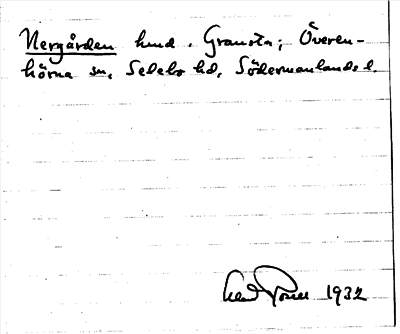 Nergården hmd. Gransta; Överen-
hörna sn, Selebo hd, Södermanlands l.
1932